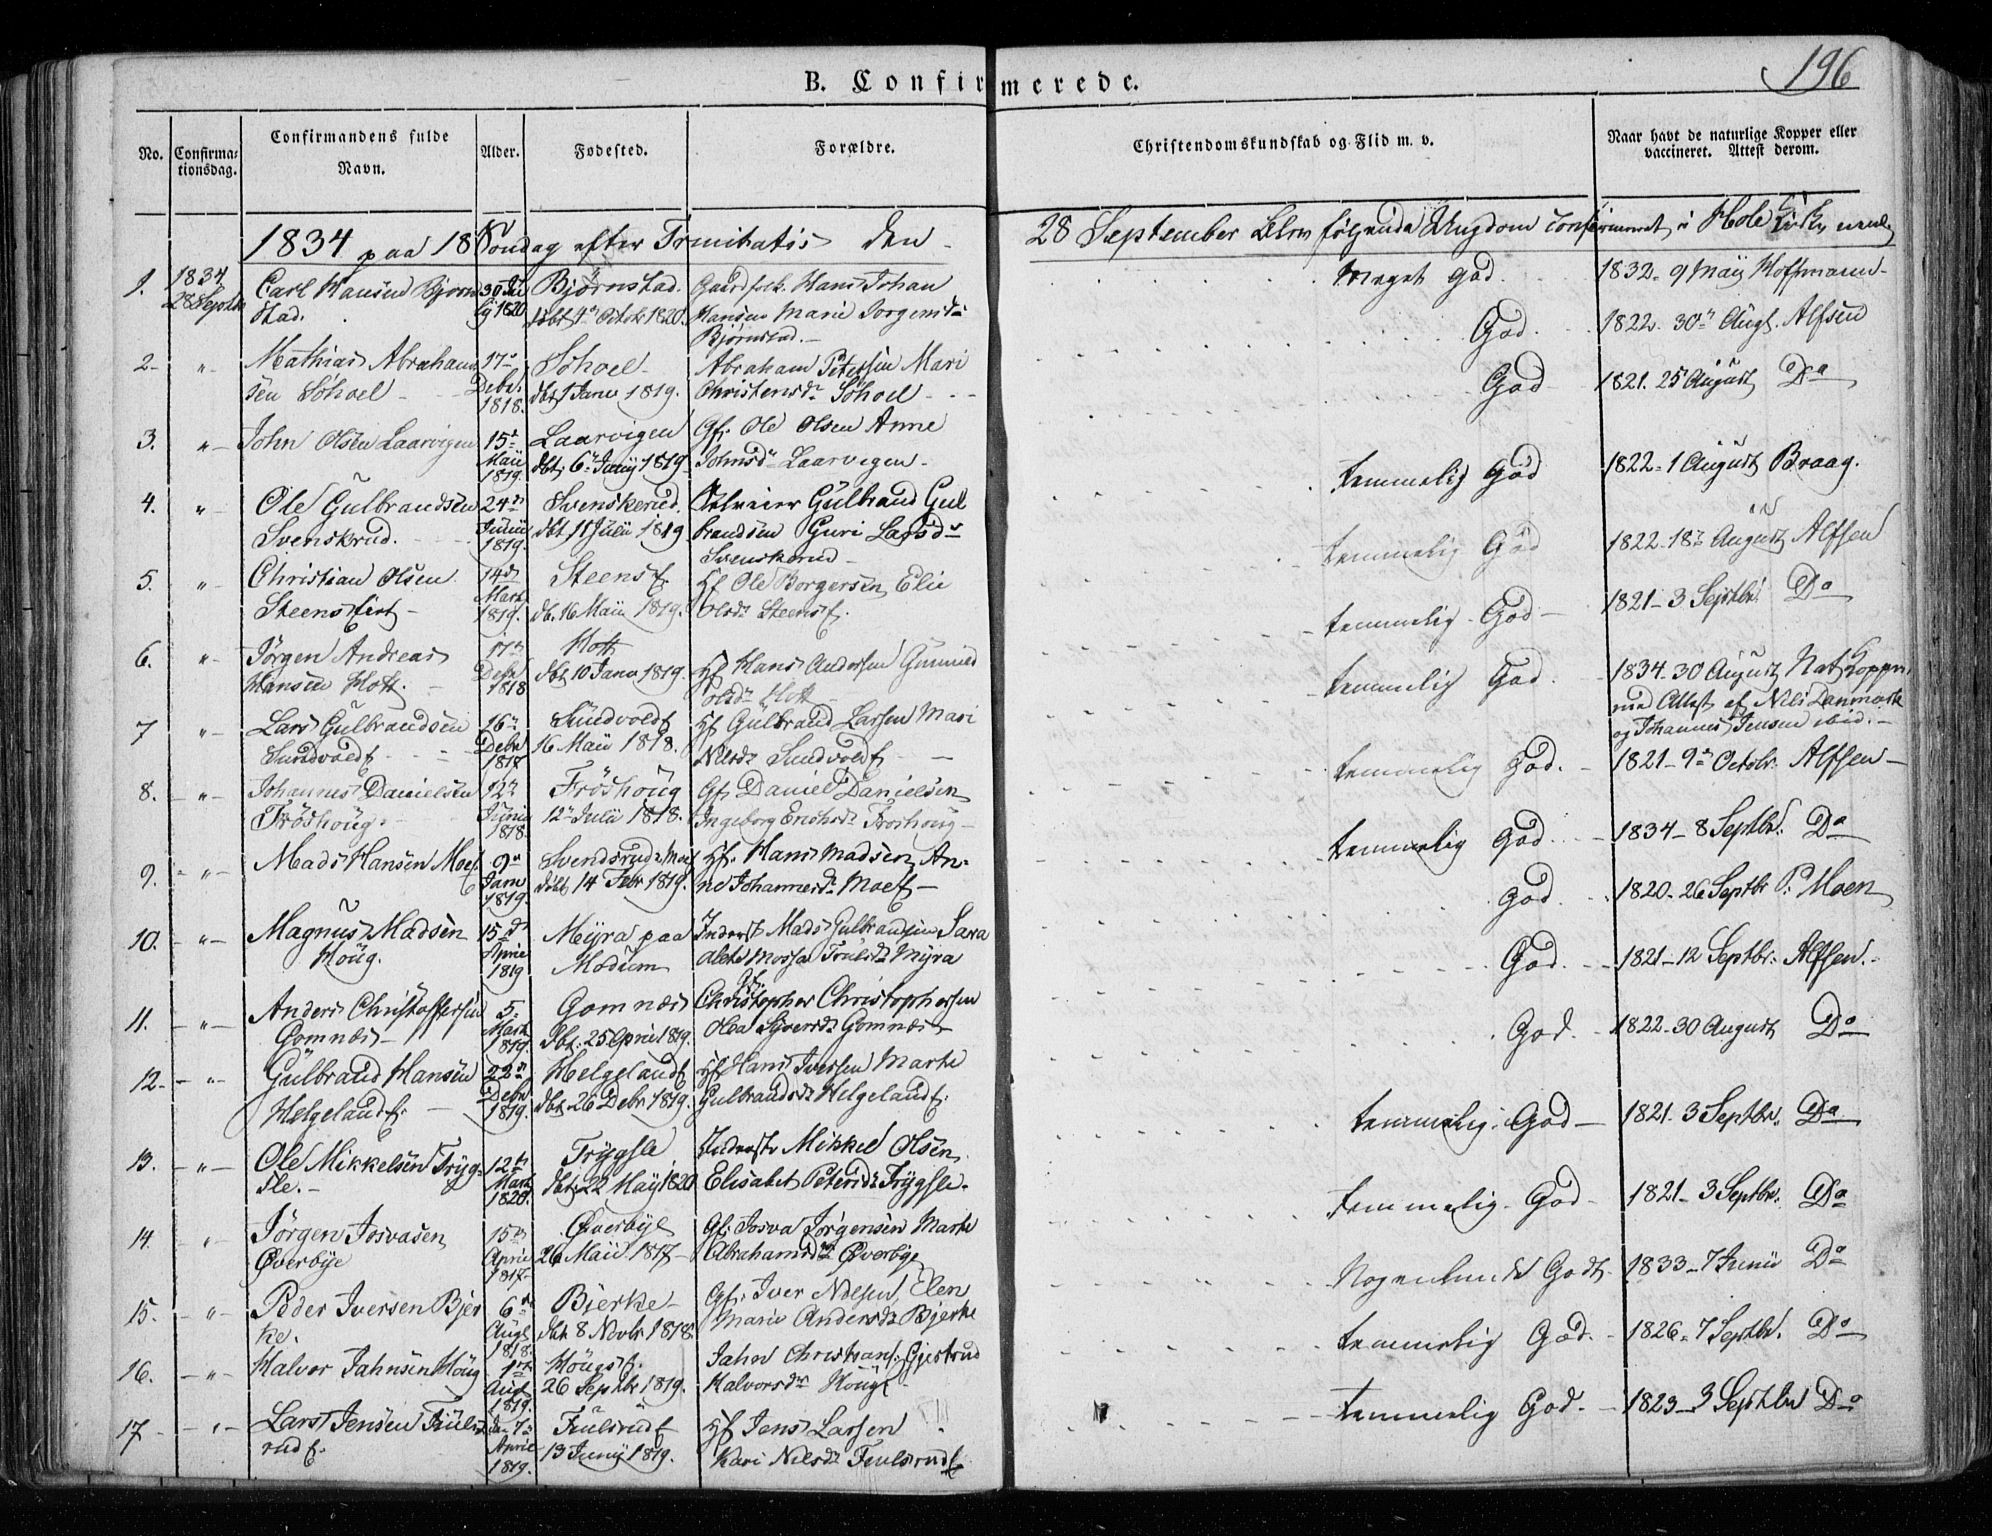 196
B. Confirmerede.
No.
Confirma-
tionsdag.
Confirmandens fulde
Navn.
Alder.
Fødested.
Forældre.
Christendomskundskab og Flid m. v.
Naar havt de naturlige Kopper eller
vaccineret. Attest derom.
1834 paa 18 Søndag efter Trinitatis den 28 September blev følgende Ungdom confirmeret i Hole Kirke
1. 1834 28 Septbr
Carl Hansen Bjørn
stad.
30 Ju
ly 1820
Bjørnstad.
døbt 4 Octob 1820.
Gaardfolk. Hans Johan
Hansen Marie Jørgensd
Bjørnstad.
Meget God.
1832. 9 Maij Hoffmann
2 - " -
Mathias Abraham
sen Söhoel
17
Debr.
1818.
Söhoel
dbt 1 Janr 1819.
Abraham Petersen Mari
Christensdr Söhoel
God.
1822. 30 Augt. Alfsen
3. " -
John Olsen Laarvigen
15
Maii
1819.
Laarvigen
dbt 6 Junij 1819
Gf. Ole Olsen Anne
Johnsd Laarvigen
God
1821. 25 August Do
4. " -
Ole Gulbrandsen
Svenskrud.
24
Junii
1819.
Svenskerud.
dbt 11 Julii 1819
Gulbrand Gul
brandsen Guri Larsdr
Svenskerud
temmelig God
1822 - 1 August Braag.
5. "
Christian Olsen
Steens Eiet
14
Marts
1819.
Steens E.
db. 16 Maii 1819.
Hf Ole Borgersen Elie
Olsdr Steens E.
temmelig God
1822 - 18 August Alfsen
6. " -
Jørgen Andreas
Hansen Hott.
17
Debr
1818
Hott
dbt 10 Janr 1819.
Hf Hans Andersen Gunnild
Olsdr Hott
temmelig God
1821 - 3 Septbr. Do
7 " -
Lars Gulbrandsen
Sundvold E
16
Debr
1817
Sundvold E
16 Maii 1818.
Hf Gulbrand Larsen Mari
Nilsdr Sundvold E
temmelig God.
1834. 30 August Nat. Kopper,
med Attest af Nils Danmark
og Johannes Jensen ibid.
8. - " -
Johannes Danielsen
Fröshöug
12
Junii
1818.
Fröshöug
12 Julii 1818.
Gf. Daniel Danielsen
Ingeborg Erichsdr Froshoug
temmelig God.
1821 - 9 Octobr. Alfsen
9. - " -
Mads Hansen Moe E
9
Janr
1819.
Svendsrud Moe E
döbt 14 Febr 1819.
Hf. Hans Madsen An-
ne Johannesdr Moe E
temmelig God
1834 - 8 Septbr. Do
10. - " -
Magnus Madsen
Höug.
15
April
1819
Mÿra paa
Modum
Inderst Mads Gulbrandsen Sara
Alete Mossa Mÿra
God.
1820 - 26 Septbr P. Moen
11. - " -
Anders Christoffersen
Gomnæs
5
Mart
1819.
Gomnæs
Dbt. 25 April 1819.
Gf.
Christopher Christophersen
Olea Syversdr Gomnæs
God.
1821 - 12 Septbr. Alfsen.
12. - " -
Gulbrand Hansen
Helgeland E.
22
Debr
1819.
Helgeland E
dbt 26 Debr 1819.
Hf Hans Iversen Marte
Gulbrandsdr Helgeland E.
God.
1822 - 30 August Do
13. - " -
Ole Mikkelsen Tryg-
sle.
12
Mart
1820.
Tryggsle
dbt. 22 Maij 1820
Inderste Mikkel Olsen
Elisabet Petersdr Trygsle.
temmelig God
1821 - 3 Septbr. Do
14. "
Jørgen Josvasen
Øverbÿe
15
April
1817
Øverbÿe
26 Maii 1817
Gf. Josva Jørgensen Marte
Abrahamsdr Øverbÿe
temmelig God
1821 - 3 Septbr. Do
15. - " -
Peder Iversen Bjer
ke.
6
Augt
1818.
Bjerke
dbt 8 Novbr 1818
Gf. Iver Nilsen Elen
Marie Andersdr Bjerke
Nogenlunde Godt.
1833 - 7 Junii Do
16. - " -
Halvor Jahnsen Höug
1
Augt
1819.
Höugs E.
26 Septbr 1819.
Jahn Christians. Gjertrud
Halvorsdr Höug E
temmelig God.
1826. 7 Septbr. Do
17 - " -
Lars Jensen Fiuls
rud E.
den 7
April
1819.
Fiulsrud E
13 Junij 1819.
Hf Jens Larsen
Kari Nilsdr Fiulsrud E
temmelig God.
1823 - 3 Septbr Do